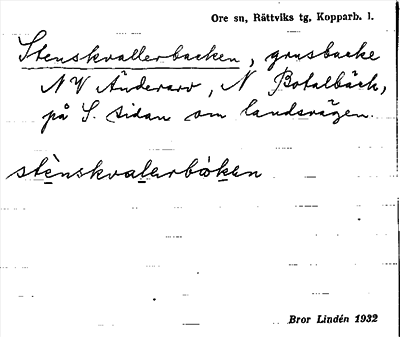 Ore sn, Rättviks tg, Kopparb. l.
Stenskvallerbacken, grusbacke
NV Änderarv, N Botalbäck,
på S. sidan om landsvägen.
stènskvalerbàken
Bror Lindén 1932